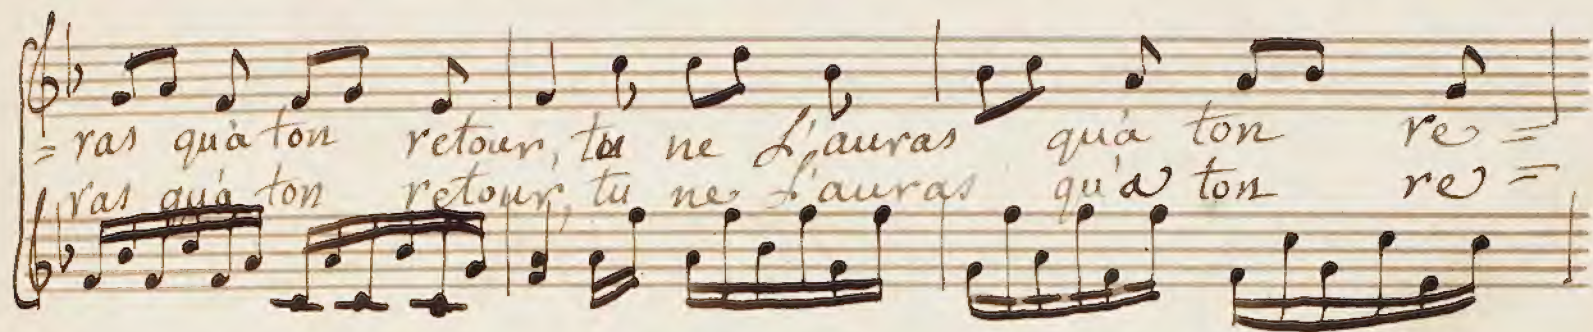 =ras qu'a ton retour, tu ne L'auras qu'a ton re=
ras qu'a ton retour, tu ne L'auras qu'a ton re=